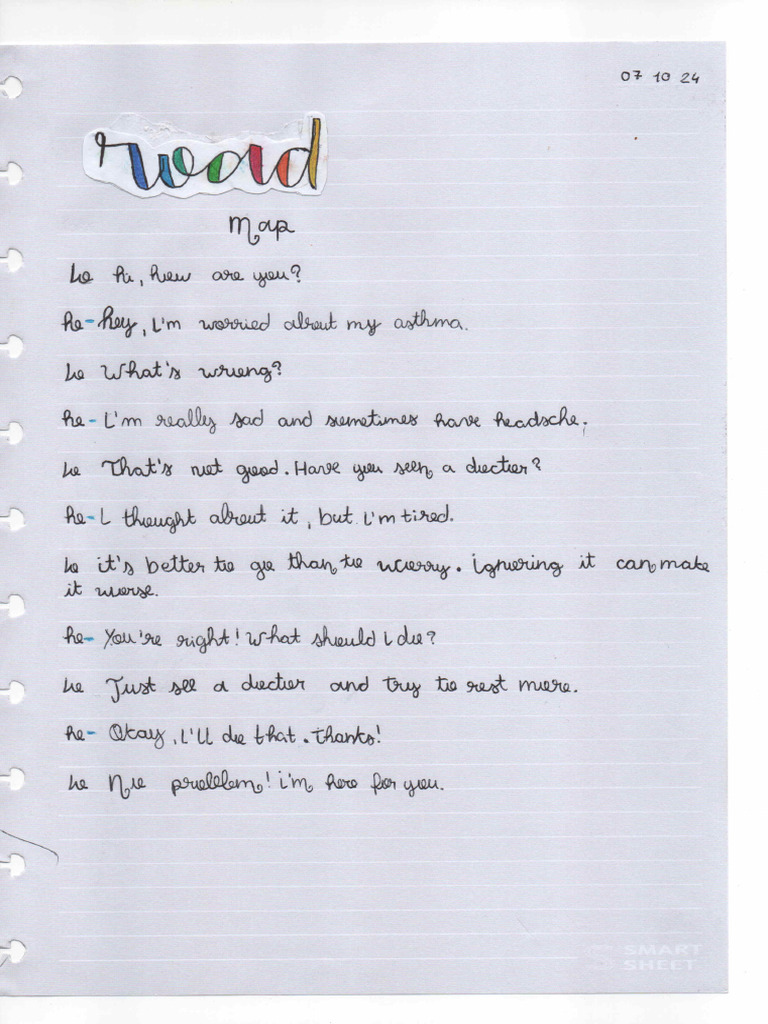 07 10 24
road
Map
Lo hi, how are you?
he- hey, I'm worried about my asthma.
Lo What's wrong?
he- I'm really sad and sometimes have headsche.
Lo That's not good. Have you seen a doctor?
he- I thought about it, but I'm tired.
Lo it's better to go than to worry. ignoring it can make
it worse.
he- You're right! What should I do?
Lo Just see a doctor and try to rest more.
he- Okay, I'll do that. thanks!
Lo No problem! i'm here for you.
SMART
SHEET